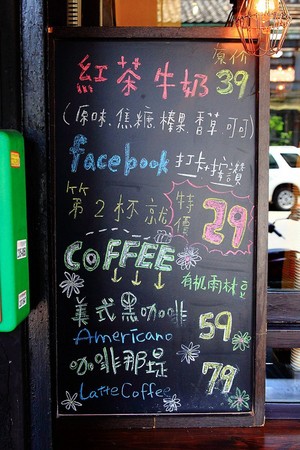 原价
紅茶牛奶 39
(原味.焦糖.榛果.香草.可可)
facebook 打卡按讚
第2杯就 特價 29
COFFEE
有机雨林豆
美式黑咖啡 59
Americano
咖啡那堤 79
Latte Coffee